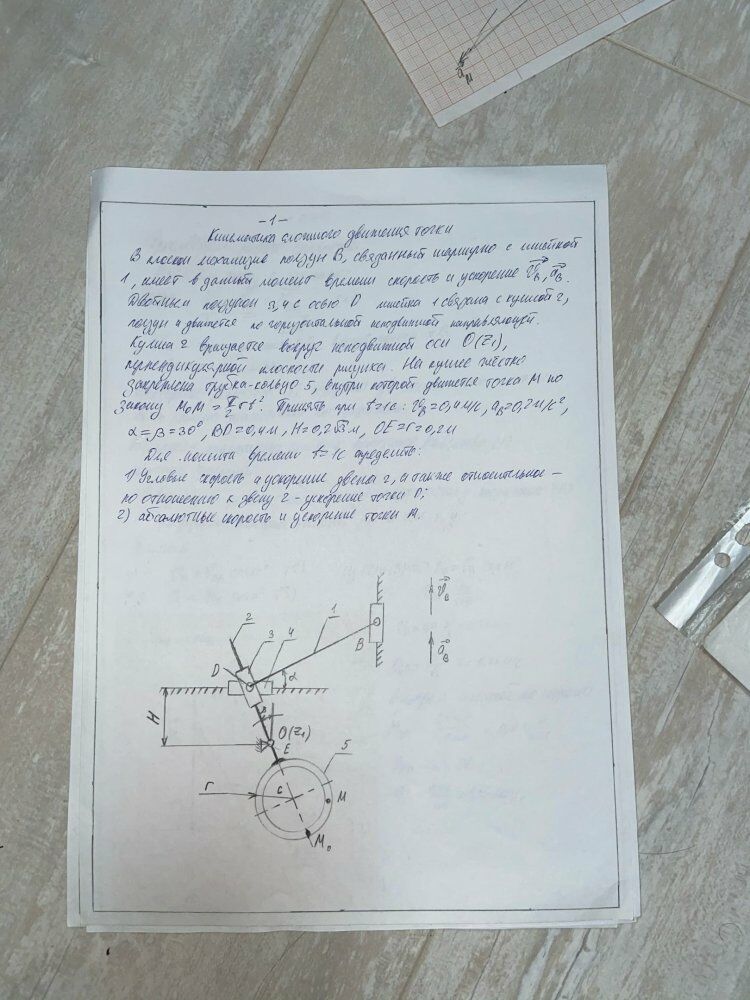 -1-
Кинематика сложного движения точки
В плоском механизме ползун В, связанный шарнирно с линейкой
1, имеет в данный момент времени скорость и ускорение V⃗B, a⃗B.
Двойным ползуном 3, 4 с осью D линейка 1 связана с кулисой 2,
ползун 4 движется по горизонтальной неподвижной направляющей.
Кулиса 2 вращается вокруг неподвижной оси O(Z₁),
перпендикулярной плоскости рисунка. На кулисе жёстко
закреплена трубка-кольцо 5, внутри которой движется точка М по
закону M₀M = π/2 r t². Принять при t=1c: VB=0,4 м/с, aB=0,2 м/с²,
α=β=30°, BD=0,4м, H=0,2√3 м, OE=r=0,2м
Для момента времени t=1c определить:
1) Угловые скорость и ускорение звена 2, а также относительное –
по отношению к звену 2 - ускорение точки D;
2) абсолютные скорость и ускорение точки М.
2
3
4
1
D
B
V⃗B
a⃗B
α
H
β
O(Z₁)
E
5
r
C
M
M₀
a⃗M